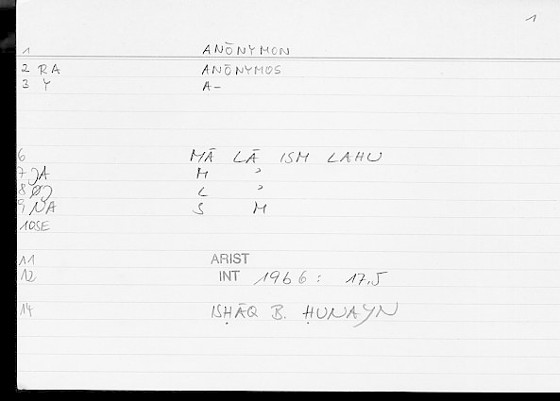 1
1 ANŌNYMON
2 RA ANŌNYMOS
3 Y A-
6 MĀ LĀ ISM LAHU
7 JA M ʾ
8 L ʾ
9 NA S M
10 SE
11 ARIST
12 INT 1966: 17,5
14 ISḤĀQ B. ḤUNAYN